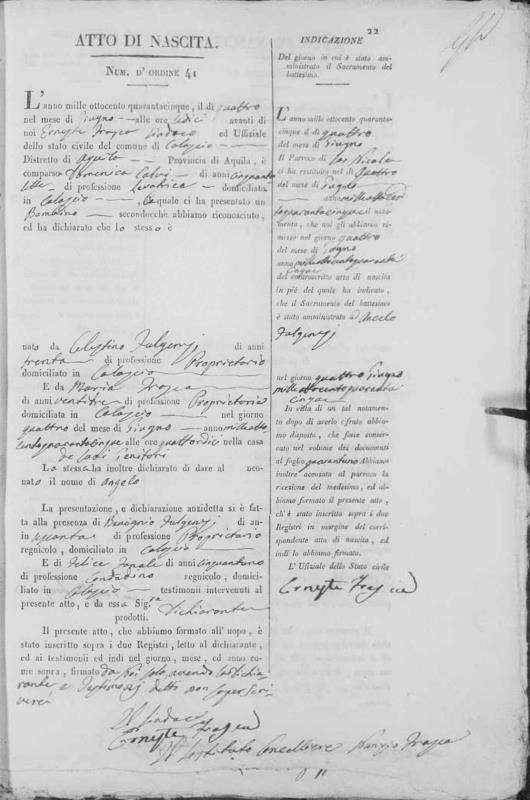 22
ATTO DI NASCITA.
NUM. D' ORDINE 41
L'anno mille ottocento quarantacinque, il dì quattro
nel mese di Giugno alle ore sedici avanti di
noi Erneste Frasca Sindaco ed Uffiziale
dello stato civile del comune di Calascio
Distretto di Aquila Provincia di Aquila, è
comparso Domenica di anni cinquanta
di professione Levatrice domiciliata
in Calascio quale ci ha presentato un
Bambino secondocchè abbiamo riconosciuto,
ed ha dichiarato che lo stesso è
nato da Celestino Fulgenzj di anni
trenta di professione Proprietario
domiciliato in Calascio
E da Maria Frasca
di anni ventitre di professione Proprietaria
domiciliata in Calascio nel giorno
quattro del mese di Giugno anno milleotto
centoquarantacinque alle ore quattordici nella casa
de Genitori
La stessa ha inoltre dichiarato di dare al neo-
nato il nome di Angelo
La presentazione, e dichiarazione anzidetta si è fat-
ta alla presenza di Benignio Fulgenzj di an-
ni di professione Proprietario
regnicolo, domiciliato in Calascio
E di Felice di anni cinquantuno
di professione Contadino regnicolo, domici-
liato in Calascio testimonii intervenuti al
presente atto, e da essa Sig.ra Dichiarante
prodotti.
Il presente atto, che abbiamo formato all' uopo, è
stato inscritto sopra i due Registri, letto al dichiarante,
ed ai testimonii ed indi nel giorno, mese, ed anno co-
me sopra, firmato da Noi solo avendo la dichia
rante, e Testimonj detto non saper scri
vere
Il Sindaco
Erneste Frasca
Il Sostituto Cancelliere Frasca
INDICAZIONE
Del giorno in cui è stato am-
ministrato il Sacramento del
battesimo.
L'anno mille ottocento quaranta-
cinque il dì quattro
del mese di Giugno
Il Parroco di San Nicola
ci ha restituito nel dì quattro
del mese di Giugno
anno milleotto
centoquarantacinque il nota-
mento, che noi gli abbiamo ri-
messo nel giorno quattro
del mese di Giugno
anno milleottocentoquaranta
cinque
del controscritto atto di nascita
in piè del quale ha indicato,
che il Sacramento del battesimo
è stato amministrato ad Angelo
Fulgenzj
nel giorno quattro Giugno
milleottocentoquaranta
cinque
In vista di un tal notamento
dopo di averlo cifrato abbia-
mo disposto, che fosse conser-
cato nel volume dei documenti
al foglio quarantuno Abbiamo
inoltre accusato al parroco la
ricezione del medesimo, ed ab-
biamo formato il presente atto,
ch' è stato inscritto sopra i due
Registri in margine del corri-
spondente atto di nascita, ed
indi lo abbiamo firmato.
L' Uffiziale dello Stato civile
Erneste Frasca